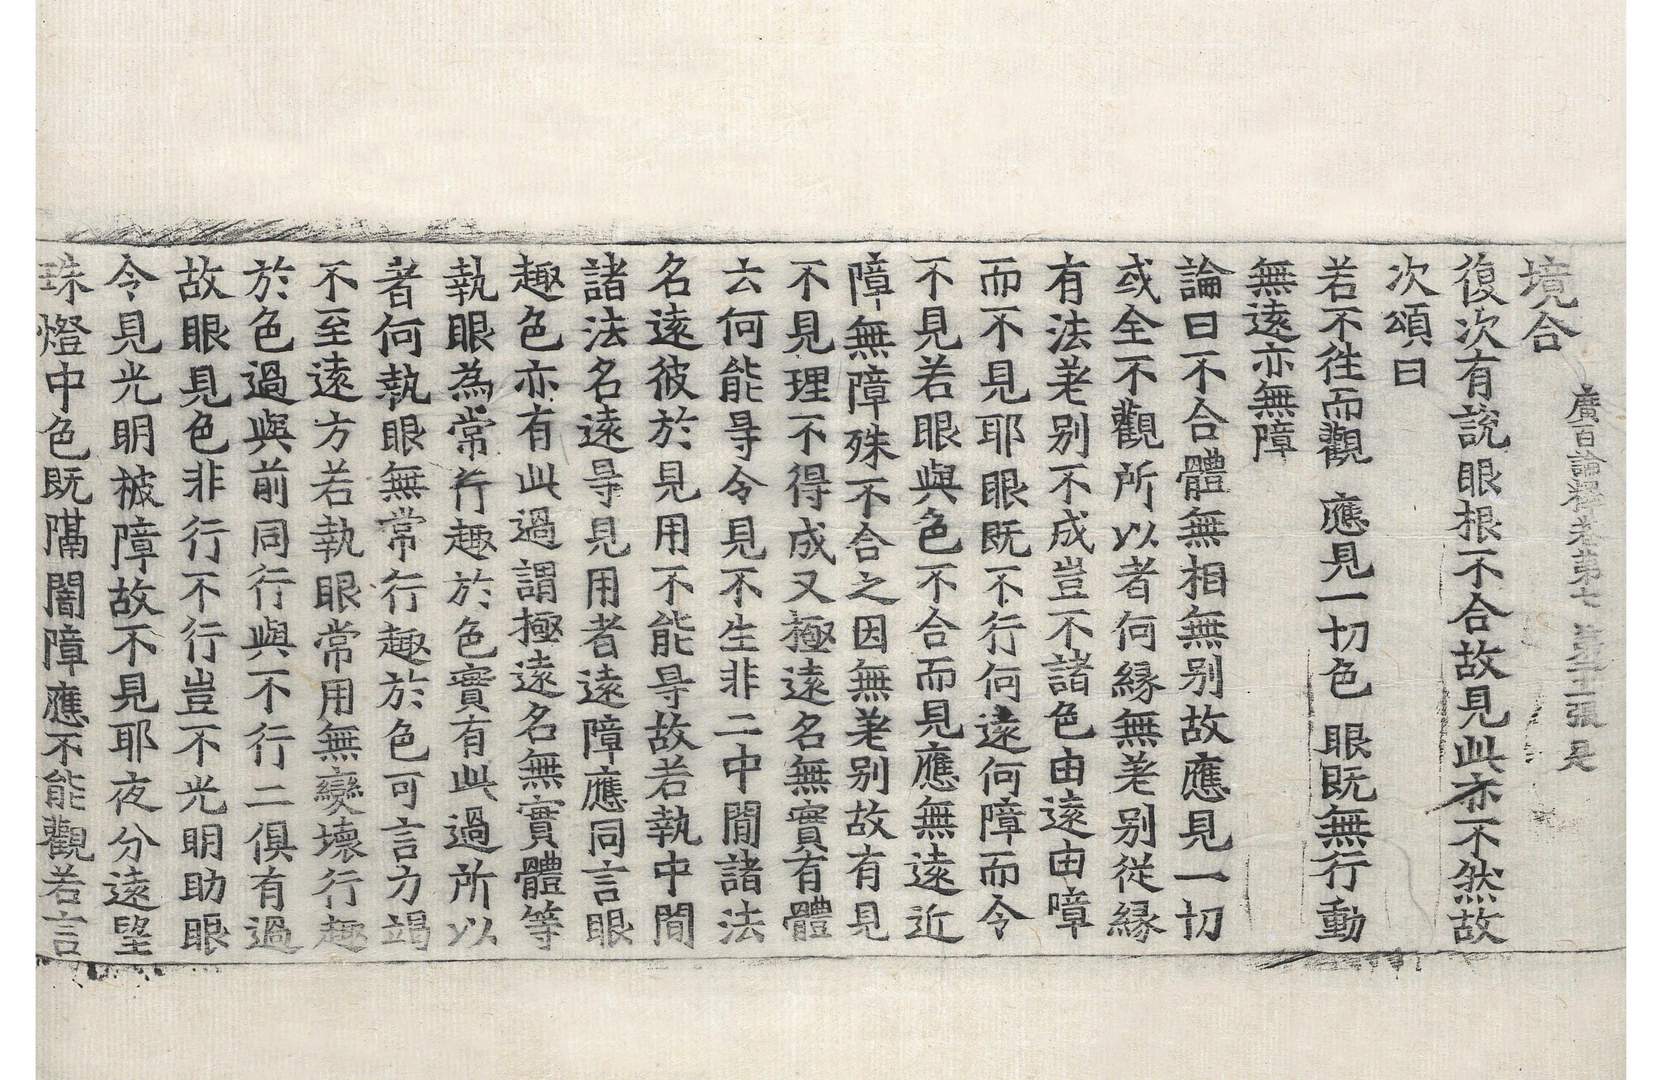 廣百論釋卷第七 第十一張 是
境合
復次有說眼根不合故見此亦不然故
次頌曰
若不往而觀 應見一切色 眼既無行動
無遠亦無障
論曰不合體無相無别故應見一切
或全不觀所以者何緣無差别從緣
有法差别不成豈不諸色由遠由障
而不見耶眼既不行何遠何障而令
不見若眼與色不合而見應無遠近
障無障殊不合之因無差别故有見
不見理不得成又極遠名無實有體
云何能㝵令見不生非二中間諸法
名遠彼於見用不能㝵故若執中間
諸法名遠㝵見用者遠障應同言眼
趣色亦有此過謂極遠名無實體等
執眼為常行趣於色實有此過所以
者何執眼無常行趣於色可言方竭
不至遠方若執眼常用無變壞行趣
於色過與前同行與不行二俱有過
故眼見色非行不行豈不光明助眼
令見光明被障故不見耶夜分遠望
珠燈中色既隔闇障應不能觀若言